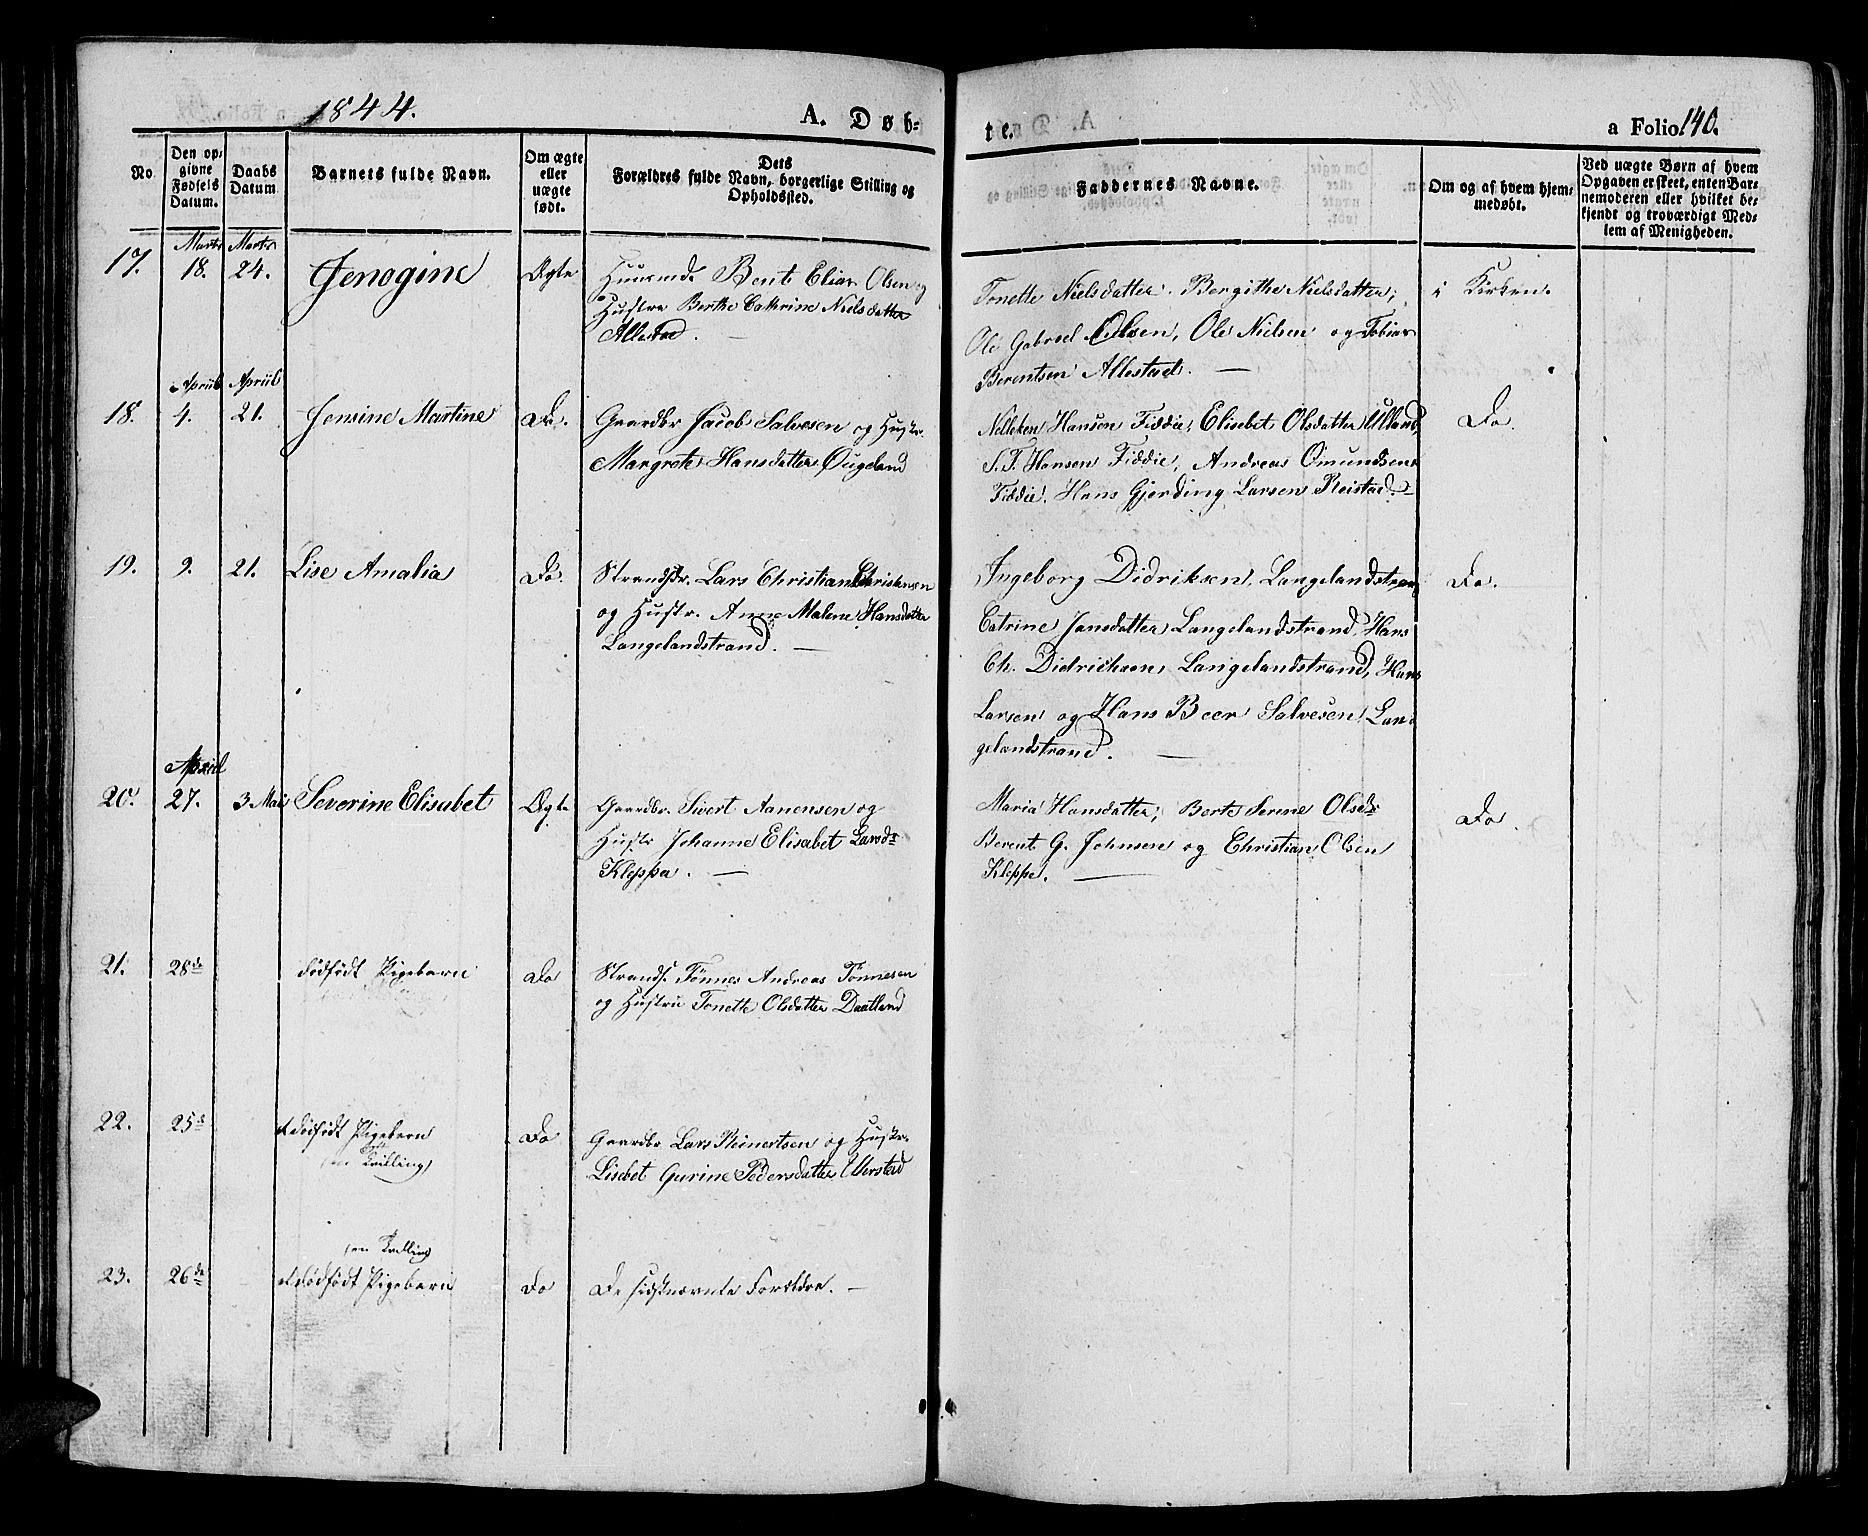 1844.
A. Døb-
te.
a Folio 140.
No.
Den op-
givne
Fødsels
Datum.
Daabs
Datum.
Barnets fulde Navn.
Om ægte
eller
uægte
født.
Dets
Forældres fulde Navn, borgerlige Stilling og
Opholdssted.
Faddernes Navne.
Om og af hvem hjem-
medøbt.
Ved uægte Børn af hvem
Opgaven er skeet, enten Bar-
nemoderen eller hvilket be-
kjendt og troværdigt Med-
lem af Menigheden.
Marts Marts
17. 18. 24. Jenogine Ægte Huusmd. Bent Elias Olsen og
Hustru Berthe Cathrine Nielsdatter
Allestad. —
Tonette Nielsdatter. Bergithe Nielsdatter,
Ole Gabriel Nilsen, Ole Nielsen og Tobias
Berentsen Allestad. —
i Kirken.
Apriil Apriil
18. 4. 21. Jensine Martine Do. Gaardbr Jacob Salvesen og Hustr.
Margrete Hansdatter Øugeland
Nilleken Hansen Fidde, Elisebet Olsdatter Ulland,
S. T. Hansen Fidde, Andreas Omundsen
Fidde. Hans Gjerding Larsen Reistad. —
Do.
19. 9. 21. Lise Amalia Do. Strands. Lars Christian Christensen
og Hustr. Anne Malene Hansdatter
Langelandstrand. —
Ingeborg Didriksen, Langelandstran
Catrine Jansdatter Langelandstrand, Hans
Ch. Didrichsen, Langelandstrand, Hans
Larsen og Hans Beer Salvesen Lan
gelandstrand. —
Do.
April
20. 27. 3 Mai Severine Elisabet Ægte Gaardbr. Sivert Aanensen og
Hustr Johanne Elisabet Larsdr
Kleppe. —
Maria Hansdatter, Berte Serine Olsdr
Berent G. Johnsen og Christian Olsen
Kleppe. —
Do.
21. 28de dödfödt Pigebarn Do Strands. Tönnes Andreas Tönnesen
og Hustru Tonette Olsdatter Daatland
22. 25d et dödfödt Pigebarn Do Gaardbr Lars Reinertsen og Hustr.
(en Tvilling)
Lisebet Gurine Pedersdatter Ullerstad
(en Tvilling)
23. 26de et dödfödt Pigebarn Do De sidstnævnte Forældre. —